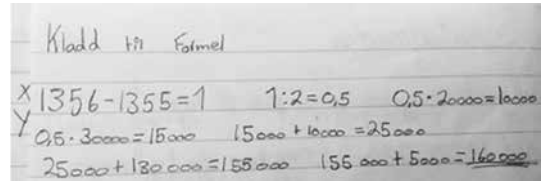 Kladd till Formel
X 1356-1355=1 1:2=0,5 0,5·20000=10000
Y 0,5·30000=15000 15000+10000=25000
25000+130000=155000 155000+5000=160000